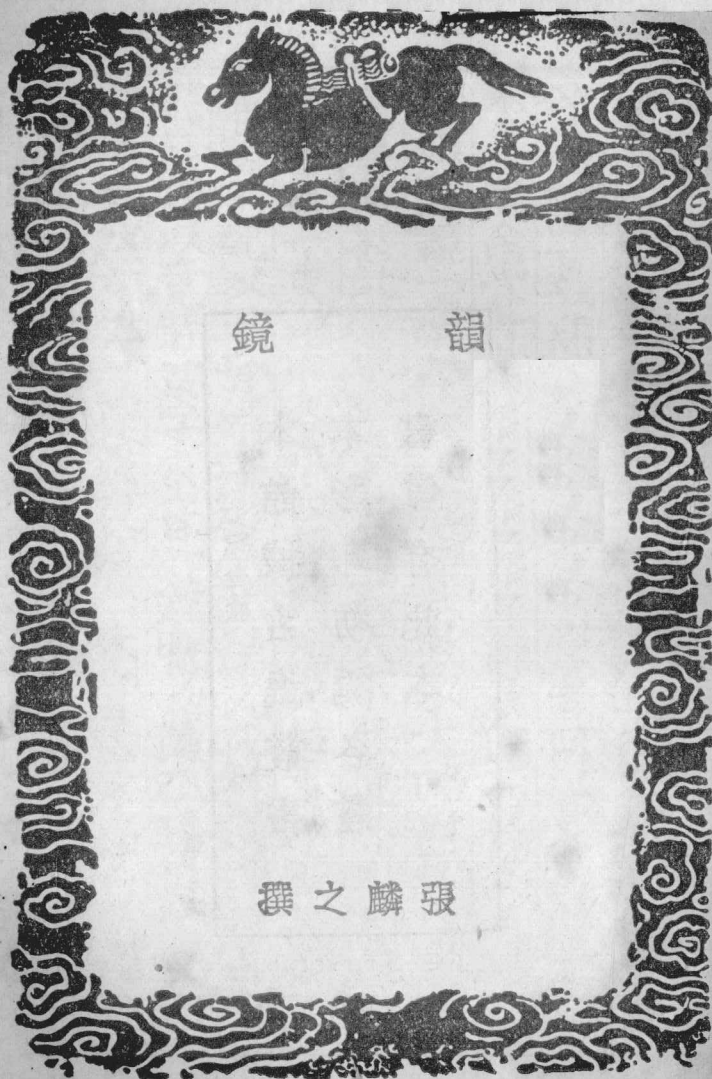 韻鏡
張麟之撰